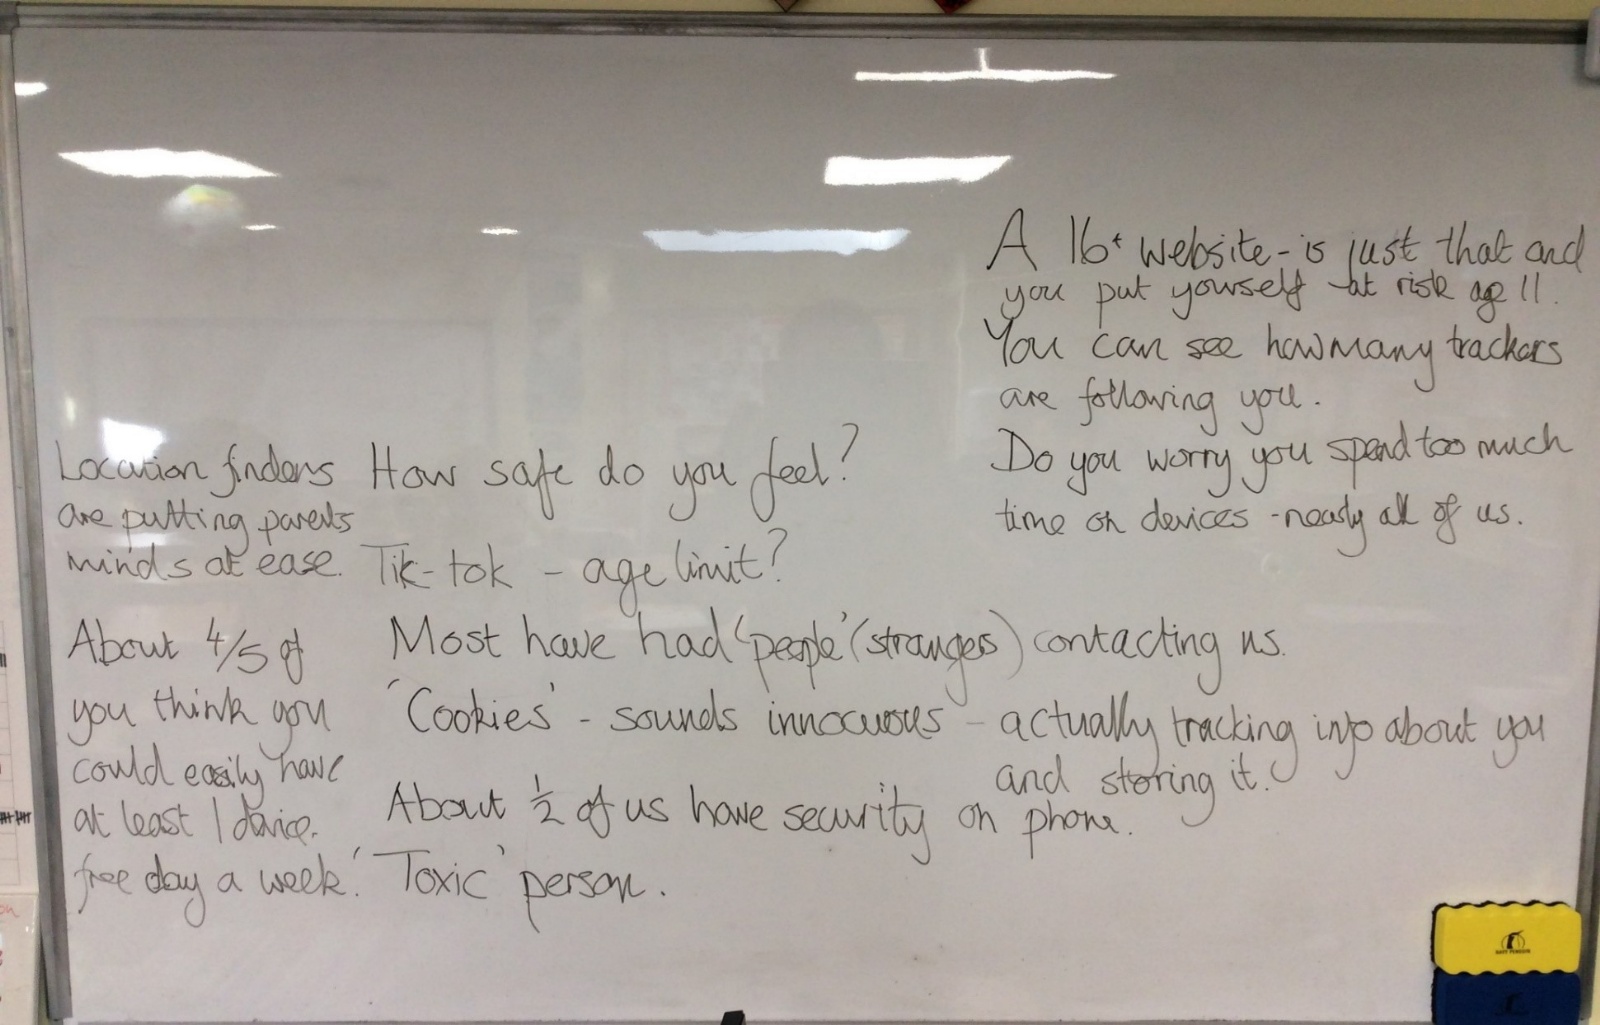 A 16+ website - is just that and
you put yourself at risk age 11.
You can see how many trackers
are following you.
Do you worry you spend too much
time on devices - nearly all of us.
Location finders
are putting parents
minds at ease.
About 4/5 of
you think you
could easily have
at least 1 device.
free day a week!
How safe do you feel?
Tik-tok - age limit?
Most have had 'people' (strangers) contacting us.
'Cookies' - sounds innocuous - actually tracking info about you
and storing it.
About 1/2 of us have security on phone.
'Toxic' person.